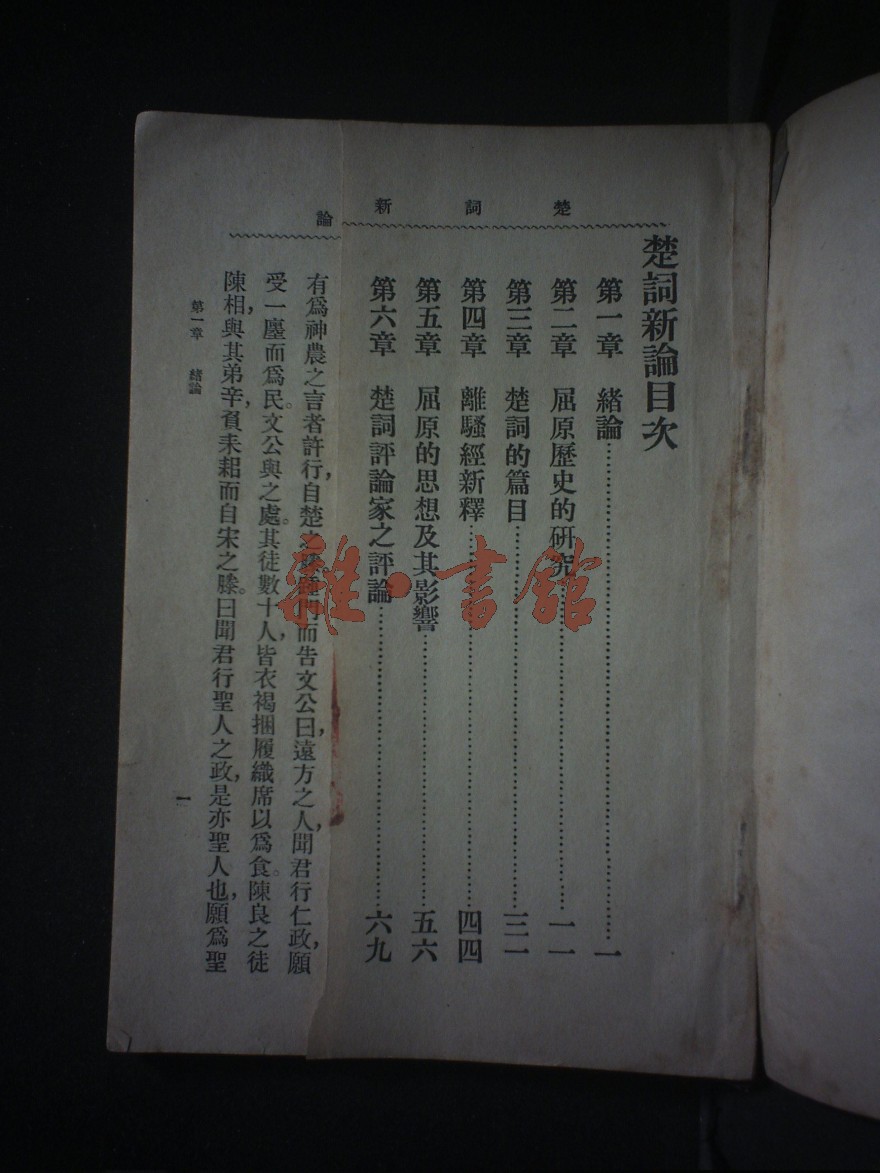 楚詞新論
楚詞新論目次
第一章 緒論……一
第二章 屈原歷史的研究……一一
第三章 楚詞的篇目……三一
第四章 離騷經新釋……四四
第五章 屈原的思想及其影響……五六
第六章 楚詞評論家之評論……六九
有爲神農之言者許行，自楚之滕。踵門而告文公曰：遠方之人，聞君行仁政，願
受一廛而爲民。文公與之處。其徒數十人，皆衣褐捆履織席以爲食。陳良之徒
陳相，與其弟辛，負耒耜而自宋之滕。曰聞君行聖人之政，是亦聖人也，願爲聖
第一章 緒論
一
雜·書館